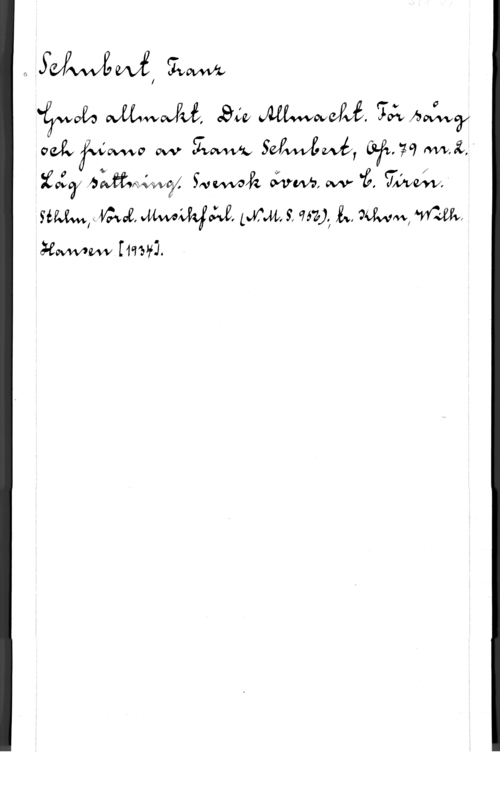 Schubert, Franz
Guds allmakt. Die Allmacht. För sång
och piano av Franz Schubert, Op. 79 nr. 2.
Låg sättning. Svensk övers. av C. Tirén.
Sthlm, Nord. Musikförl. (N.M.S. 956); Kr. Khvn, Wilh.
Hansen [1934].